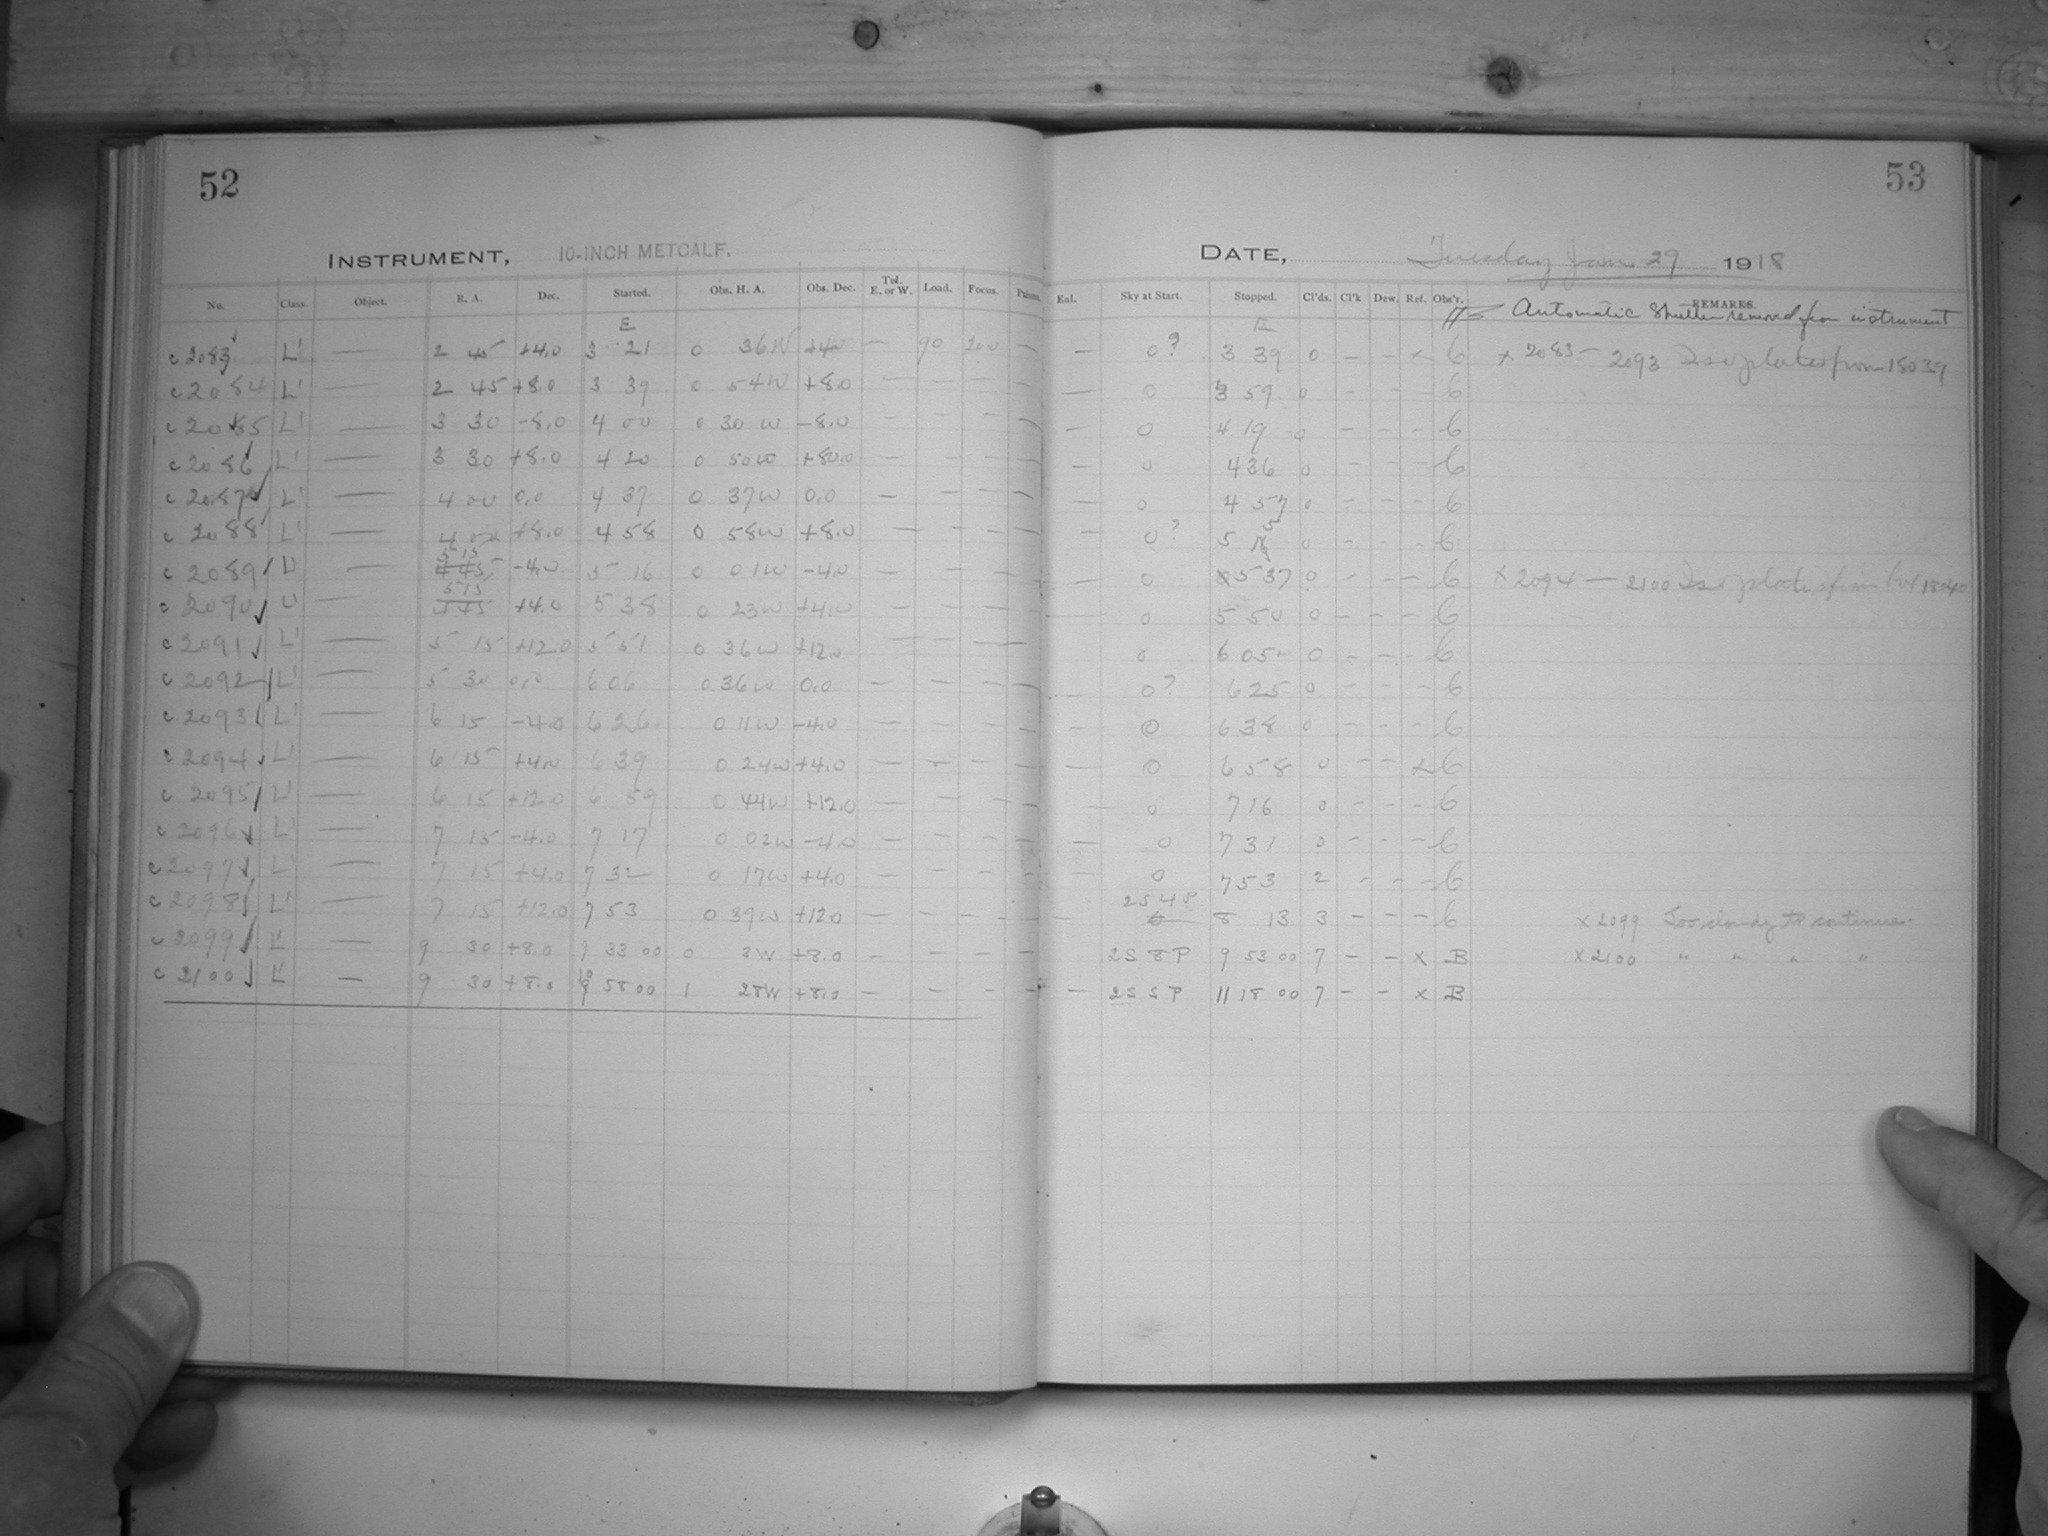 52
53
INSTRUMENT, 10-INCH METCALF.
DATE, Tuesday Jan. 29 1918
No. Class. Object. R. A. Dec. Started. Obs. H. A. Obs. Dec. Tel. E. or W. Load. Focus. Eal. Sky at Start. Stopped. Cl'ds. Cl'k Dew. Ref. Obs'r. REMARKS.
Automatic Shutter removed from instrument
E E
c 2083 L' — 2 45 +4.0 3 21 0 36W +4.0 — 90 200 — — 0? 3 39 0 — — x 6 x 2083 — 2093 plates from 18039
c 2084 L' — 2 45 +8.0 3 39 0 54W +8.0 — — — — — 0 3 59 0 - - - 6
c 2085 L' — 3 30 -8.0 4 00 0 30 W -8.0 — — — — — 0 4 19 0 - - - 6
c 2086 L' — 3 30 +8.0 4 20 0 50W +80.0 — — — — — 0 4 36 0 - - - 6
c 2087 L' — 4 00 0.0 4 37 0 37W 0.0 — — — — — 0 4 57 0 - - - 6
c 2088 L' — 4 +8.0 4 58 0 58W +8.0 — — — — — 0? 5 0 - - - 6
5 15
c 2089 L' — 4 45 -4.0 5 16 0 01W -4.0 — — — — — 0 5 37 0 - - - 6 x 2094 — 2100 plates from box 18040
5 15
c 2090 L' — 5 45 +4.0 5 38 0 23W +4.0 — — — — — 0 5 50 0 - - - 6
c 2091 L' — 5 15 +12.0 5 51 0 36W +12.0 — — — — 0 6 05 0 - - - 6
c 2092 L' — 5 30 0.0 6 06 0 36W 0.0 — — — — — 0? 6 25 0 - - - 6
c 2093 L' — 6 15 -4.0 6 26 0 11W -4.0 — — — — — 0 6 38 0 - - - 6
c 2094 L' — 6 15 +4.0 6 39 0 24W +4.0 — — — — — 0 6 58 0 - - x 6
c 2095 L' — 6 15 +12.0 6 59 0 44W +12.0 — — — — — 0 7 16 0 - - - 6
c 2096 L' — 7 15 -4.0 7 17 0 02W -4.0 — — — — — 0 7 31 0 - - - 6
c 2097 L' — 7 15 +4.0 7 32 0 17W +4.0 — — — — — 0 7 53 2 - - - 6
2S 4P
c 2098 L' — 7 15 +12.0 7 53 0 39W +12.0 — — — — — 8 13 3 - - - 6 x 2099 Too cloudy to continue.
c 2099 L' — 9 30 +8.0 9 33 00 0 3W +8.0 — — — — 2S 8P 9 53 00 7 - - x B x 2100 " " " "
c 2100 L' — 9 30 +8.0 58 00 1 28W +8.0 — — — — — 2S 5P 11 18 00 7 - - x B